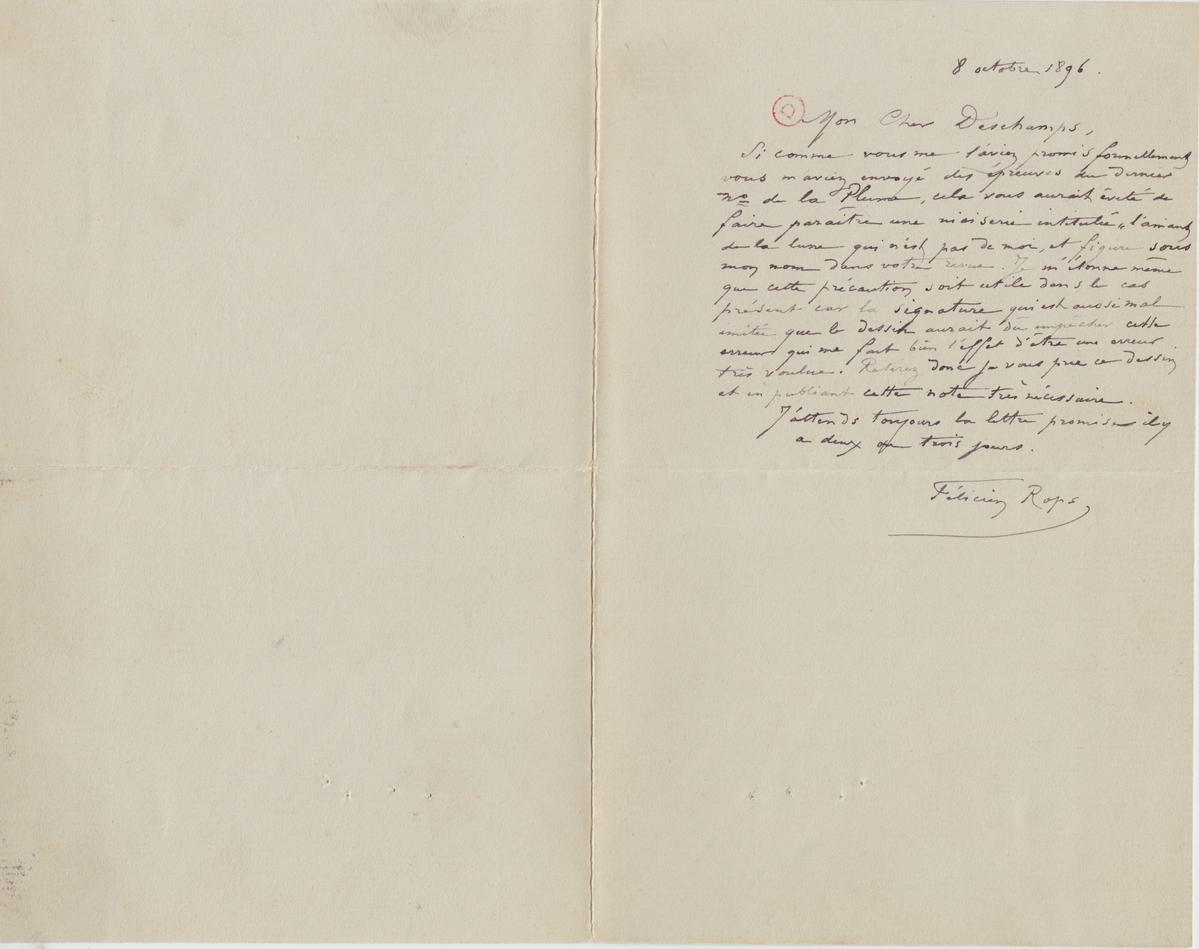 8 octobre 1896.
Mon Cher Deschamps,
Si comme vous me l'aviez promis formellement
vous m'aviez envoyé des épreuves du dernier
no de la Plume, cela vous aurait évité de
faire paraître une niaiserie intitulée „l'amant
de la lune qui n'est pas de moi, et figure sous
mon nom dans votre revue. Je m'étonne même
que cette précaution soit utile dans le cas
présent car la signature qui est aussi mal
imitée que le dessin aurait dû empêcher cette
erreur qui me fait bien l'effet d'être une erreur
très voulue. Retirez donc je vous prie ce dessin
et en publiant cette note très nécessaire.
J'attends toujours la lettre promise il y
a deux ou trois jours.
Félicien Rops